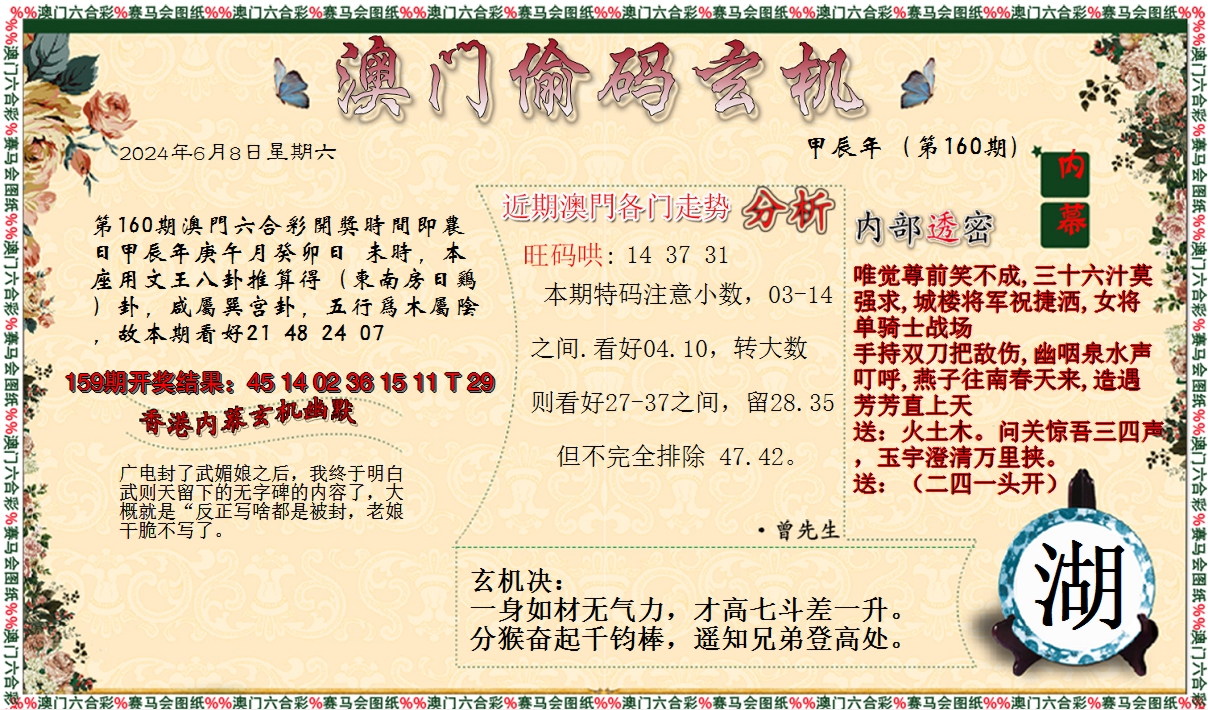 %%澳门六合彩%赛马会图纸%%澳门六合彩%赛马会图纸%%澳门六合彩%赛马会图纸%%澳门六合彩%赛马会图纸%%澳门六合彩%赛马会图纸%%澳门六合彩%赛马会图纸%%
澳门偷码玄机
2024年6月8日星期六
甲辰年（第160期）
内
幕
第160期澳門六合彩開獎時間即農
日甲辰年庚午月癸卯日 未時，本
座用文王八卦推算得（東南房日鷄
）卦，咸屬巽宫卦，五行爲木屬陰
，故本期看好21 48 24 07
159期开奖结果：45 14 02 36 15 11 T 29
香港内幕玄机幽默
广电封了武媚娘之后，我终于明白
武则天留下的无字碑的内容了，大
概就是“反正写啥都是被封，老娘
干脆不写了。
近期澳門各门走势 分析
旺码哄: 14 37 31
本期特码注意小数，03-14
之间.看好04.10，转大数
则看好27-37之间，留28.35
但不完全排除 47.42。
·曾先生
内部透密
唯觉尊前笑不成,三十六汁莫
强求,城楼将军祝捷洒,女将
单骑士战场
手持双刀把敌伤,幽咽泉水声
叮呼,燕子往南春天来,造遇
芳芳直上天
送：火土木。问关惊吾三四声
，玉宇澄清万里挟。
送：（二四一头开）
玄机决：
一身如材无气力，才高七斗差一升。
分猴奋起千钧棒，遥知兄弟登高处。
湖
%%澳门六合彩%赛马会图纸%%澳门六合彩%赛马会图纸%%澳门六合彩%赛马会图纸%%澳门六合彩%赛马会图纸%%澳门六合彩%赛马会图纸%%澳门六合彩%赛马会图纸%%